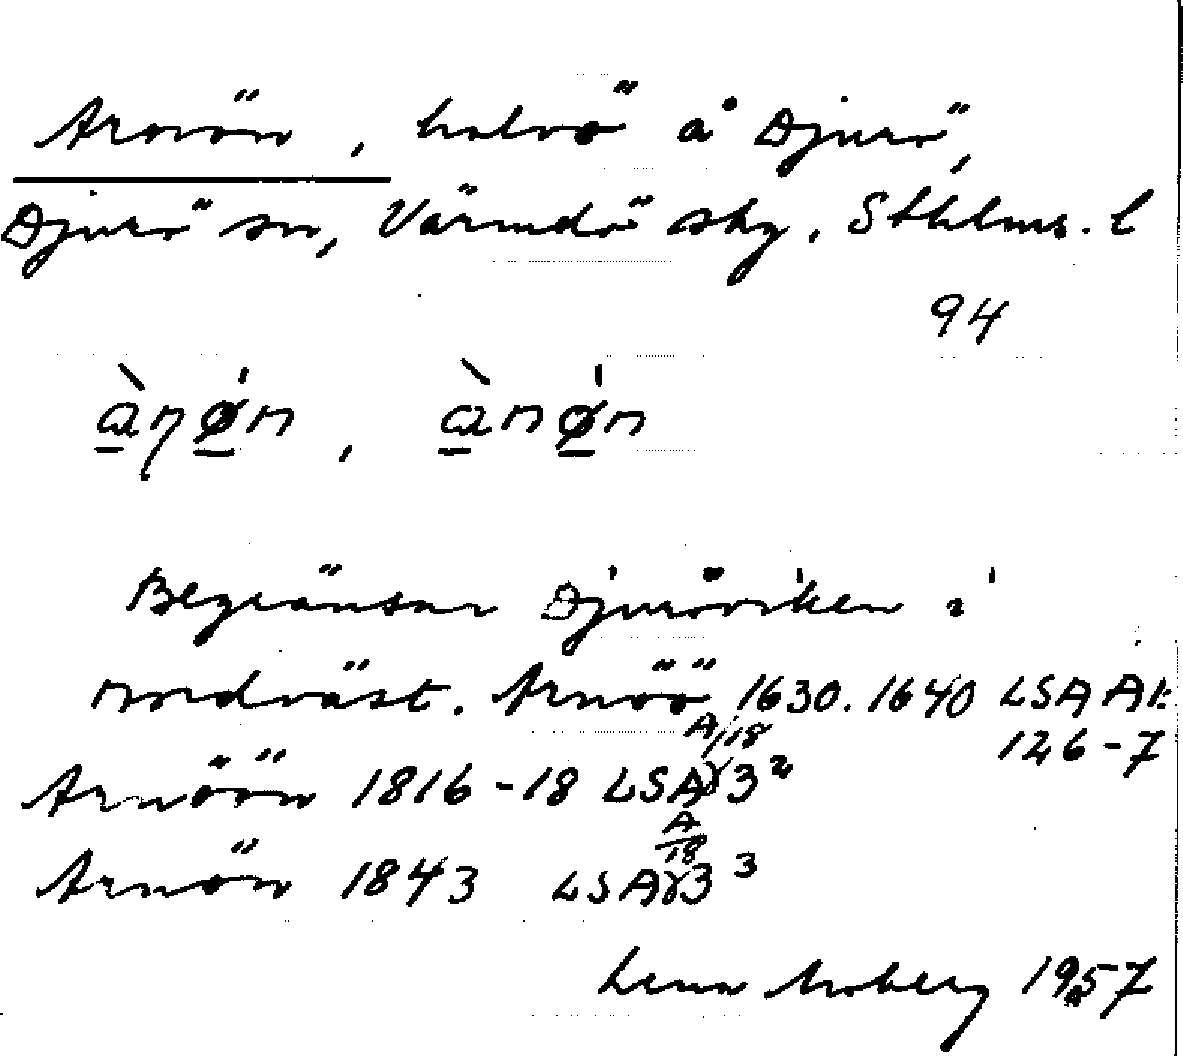 Aronön, halvö å Djurö,
Djurö sn, Värmdö skg, Sthlms. l
94
ànø̱n, ànø̱n
Begränsar Djuröviken i
nordväst. Arnöö 1630. 1640 LSA A1:
126-7
Arnöön 1816-18 LSA A/18 γ3²
Arnön 1843 LSA A/18 γ3³
Lena Moberg 1957